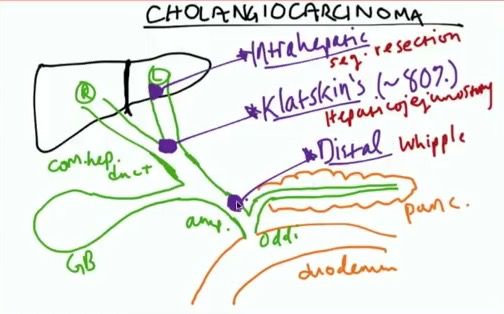 CHOLANGIOCARCINOMA
Intrahepatic
seg. resection
Klatskin's (~80%)
Hepaticojejunostomy
Distal Whipple
R
L
com. hep.
duct
GB
amp.
Oddi
panc.
duodenum